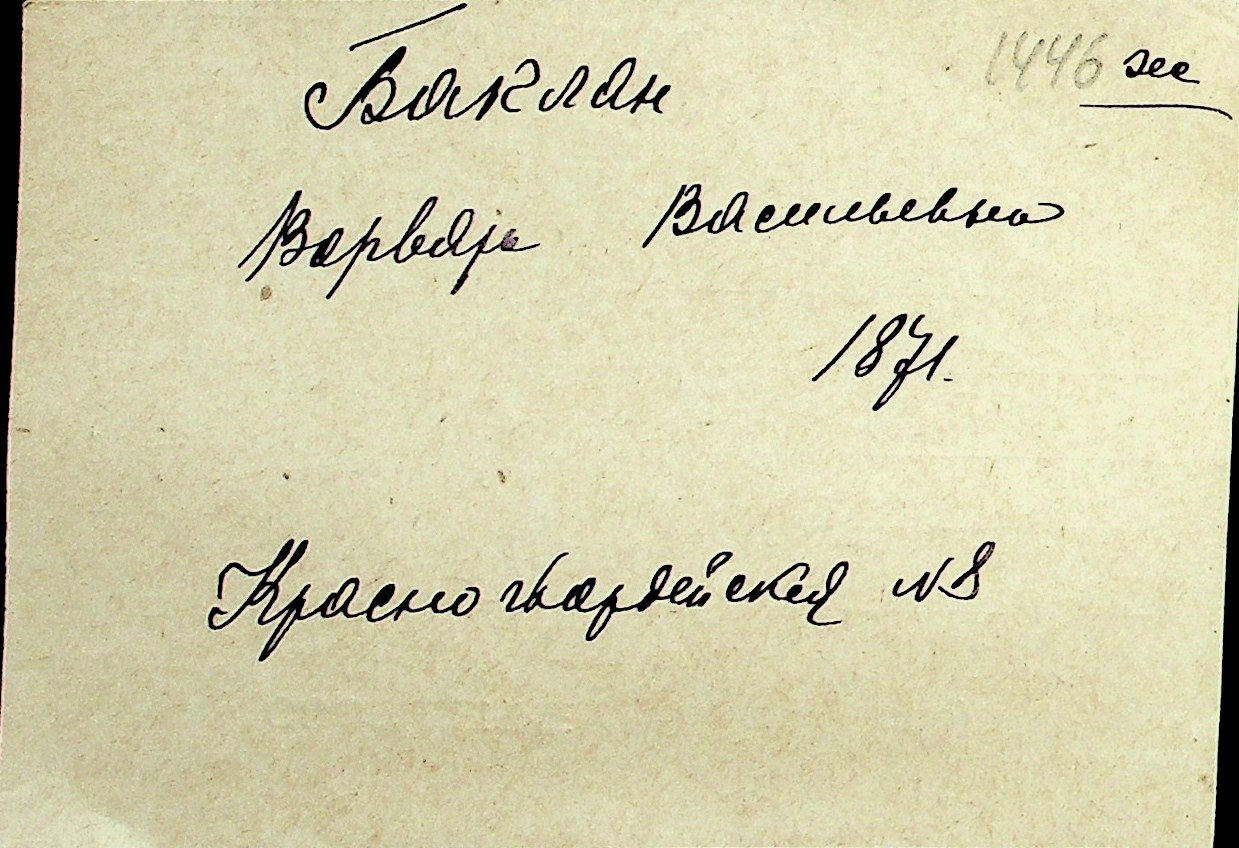 1446 же
Баклан
Варвара Васильевна
1871.
Красногвардейская №8